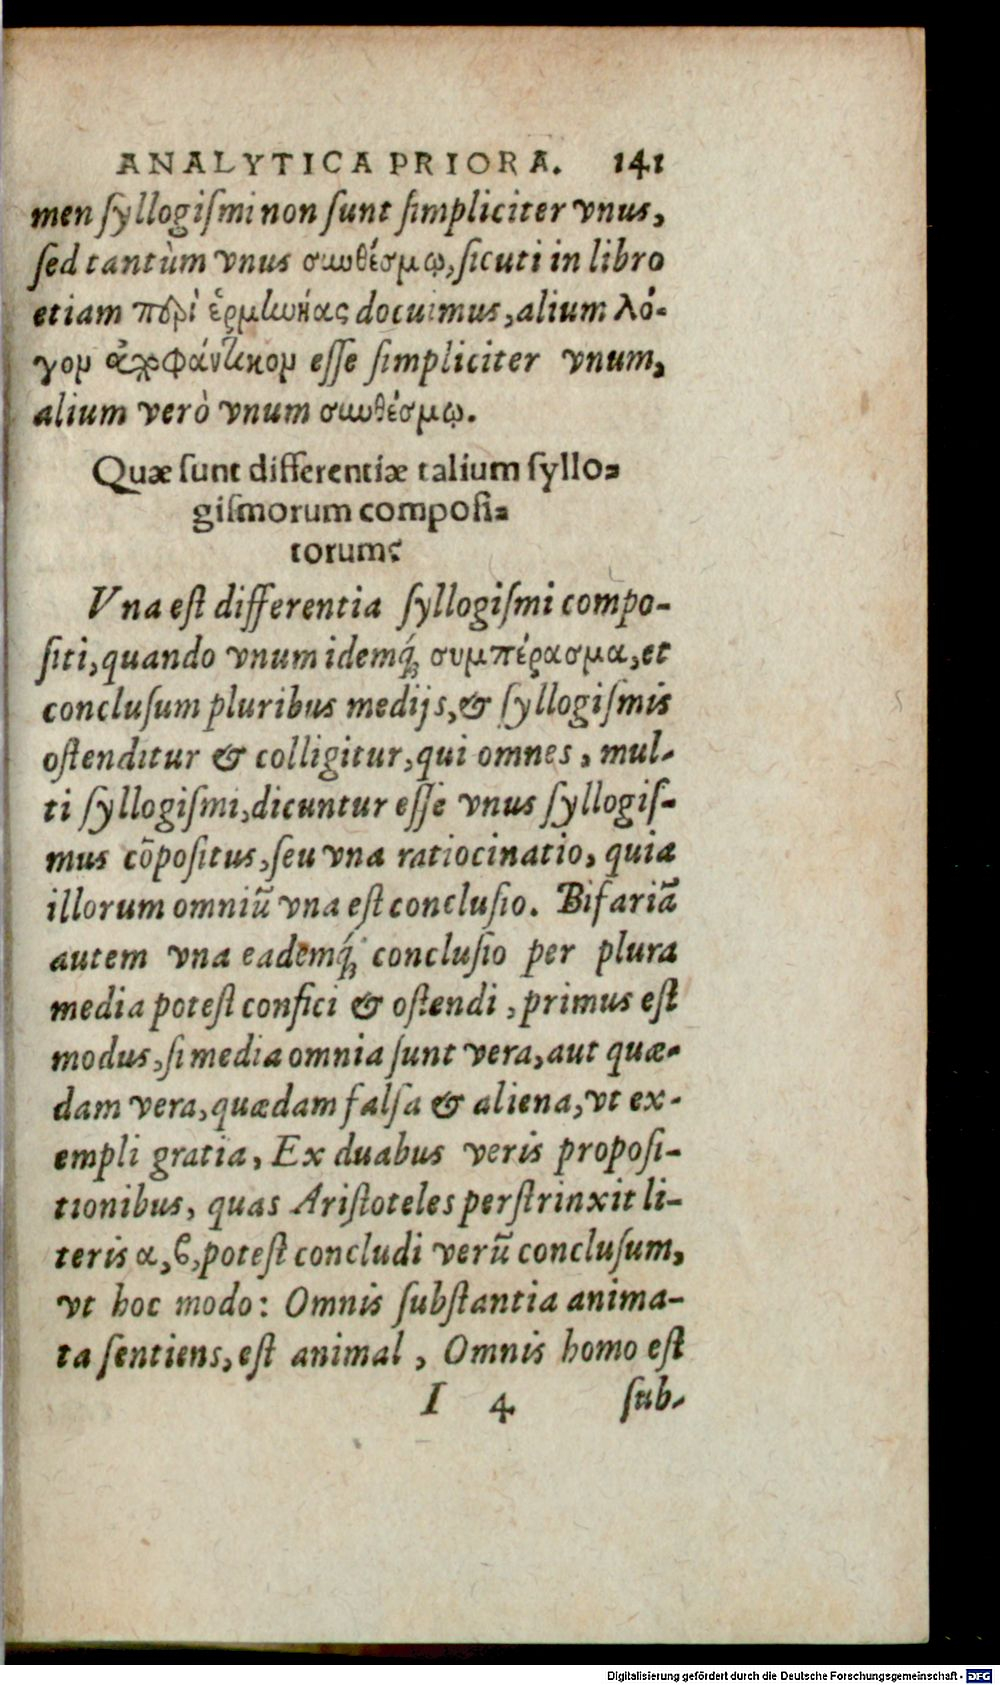 ANALYTICA PRIORA. 141
men ſyllogiſmi non ſunt ſimpliciter vnus,
ſed tantùm vnus συνθέσμῳ, ſicuti in libro
etiam περὶ ἑρμηνείας docuimus, alium λό-
γομ ἀποφάντικομ eſſe ſimpliciter vnum,
alium verò vnum συνθέσμῳ.
Quæ ſunt differentiæ talium ſyllo-
giſmorum compoſi-
torum?
Vna eſt differentia ſyllogiſmi compo-
ſiti, quando vnum idemq́; συμπέρασμα, et
concluſum pluribus medijs, & ſyllogiſmis
oſtenditur & colligitur, qui omnes, mul-
ti ſyllogiſmi, dicuntur eſſe vnus ſyllogiſ-
mus cõpoſitus, ſeu vna ratiocinatio, quia
illorum omniũ vna eſt concluſio. Bifariã
autem vna eademq́; concluſio per plura
media poteſt confici & oſtendi, primus eſt
modus, ſi media omnia ſunt vera, aut quæ-
dam vera, quædam falſa & aliena, vt ex-
empli gratia, Ex duabus veris propoſi-
tionibus, quas Ariſtoteles perſtrinxit li-
teris α, ϐ, poteſt concludi verũ concluſum,
vt hoc modo: Omnis ſubſtantia anima-
ta ſentiens, eſt animal, Omnis homo eſt
I 4 ſub-
Digitalisierung gefördert durch die Deutsche Forschungsgemeinschaft - DFG